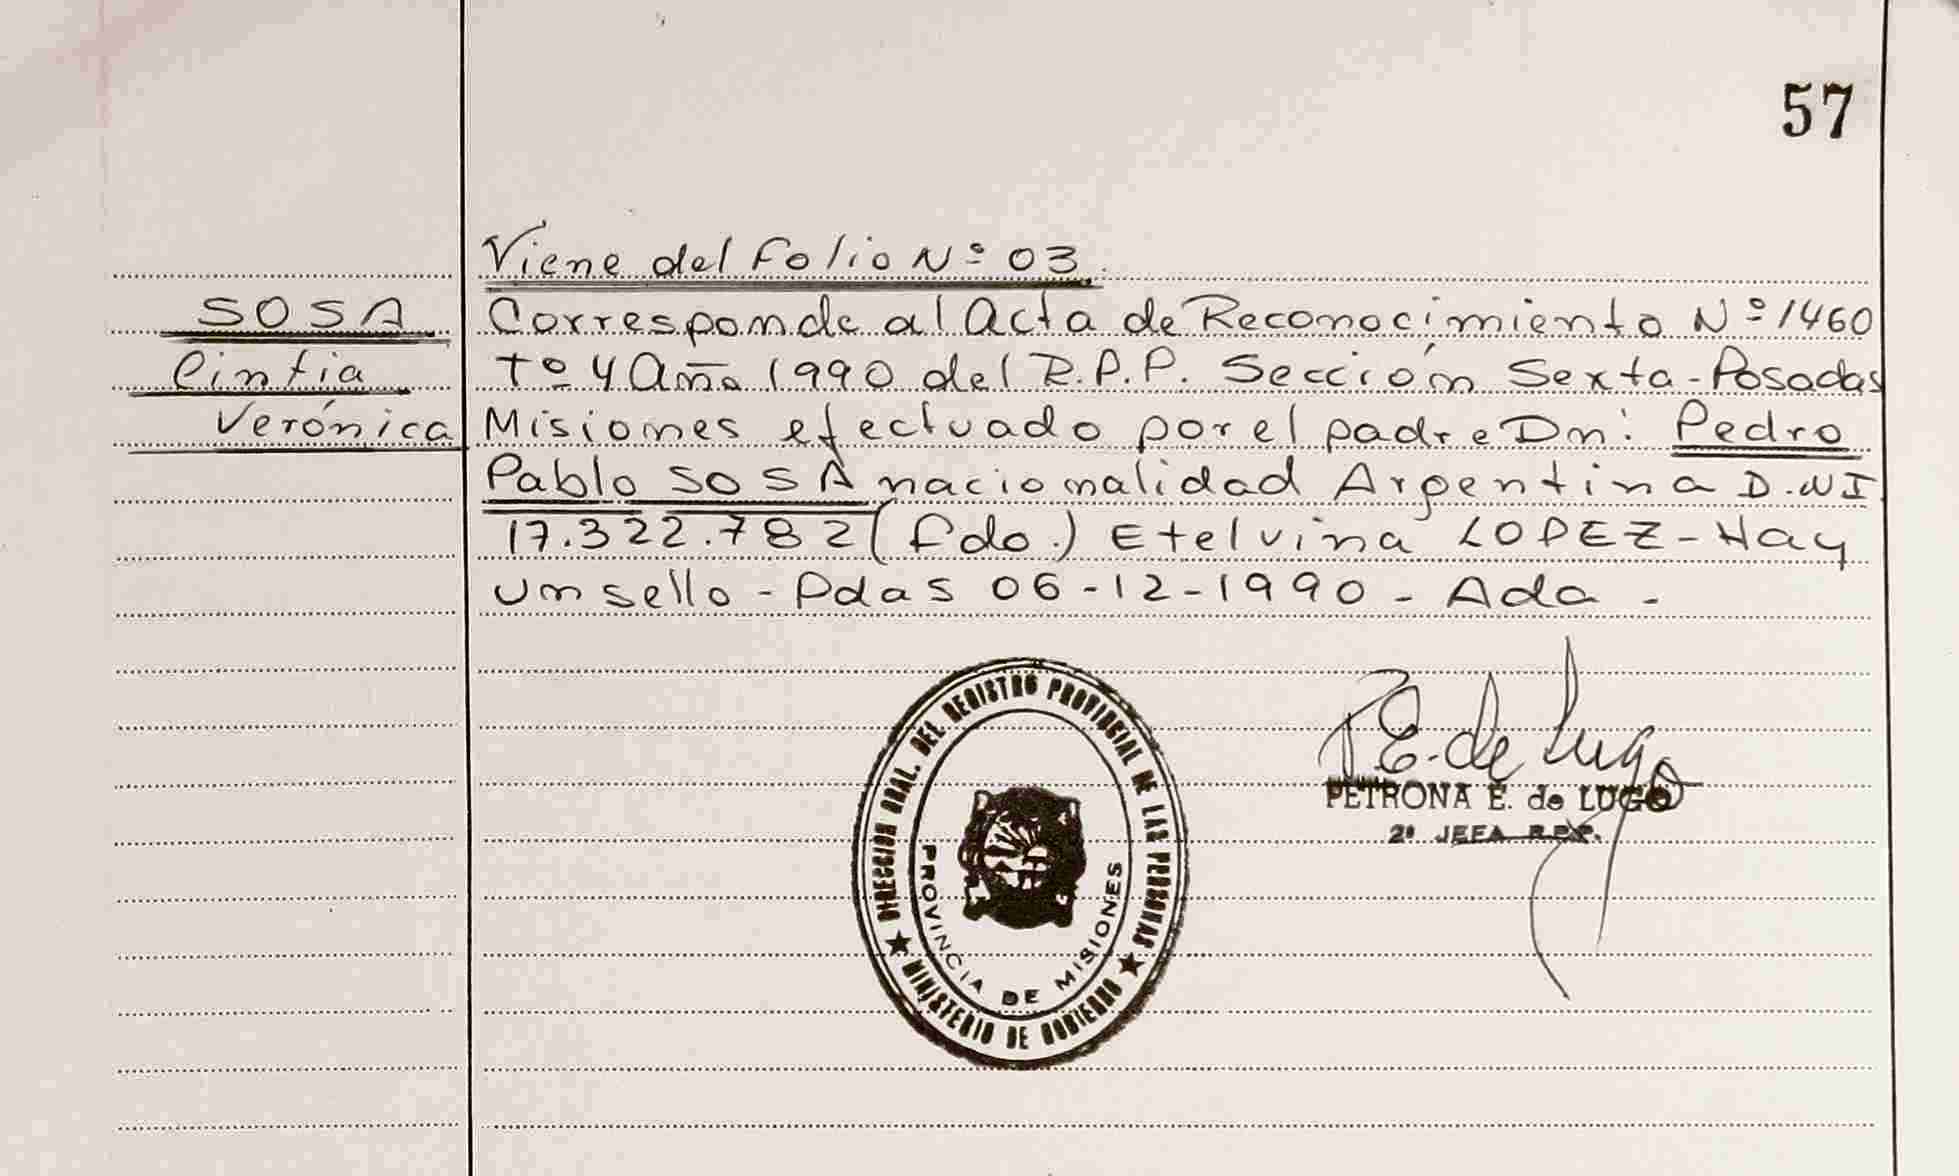 57
Viene del Folio Nº 03.
SOSA
Cintia
Verónica
Corresponde al Acta de Reconocimiento Nº 1460
Tº 4 Año 1990 del R.P.P. Sección Sexta-Posadas
Misiones efectuado por el padre Dn: Pedro
Pablo SOSA nacionalidad Argentina D.NI
17.322.782 (Fdo.) Etelvina LOPEZ - Hay
un sello - Pdas 06-12-1990 - Ada -
DIRECCION GRAL. DEL REGISTRO PROVINCIAL DE LAS PERSONAS
★ MINISTERIO DE GOBIERNO ★
PROVINCIA DE MISIONES
P E. de Lugo
PETRONA E. de LUGO
2ª JEFA R.P.P.